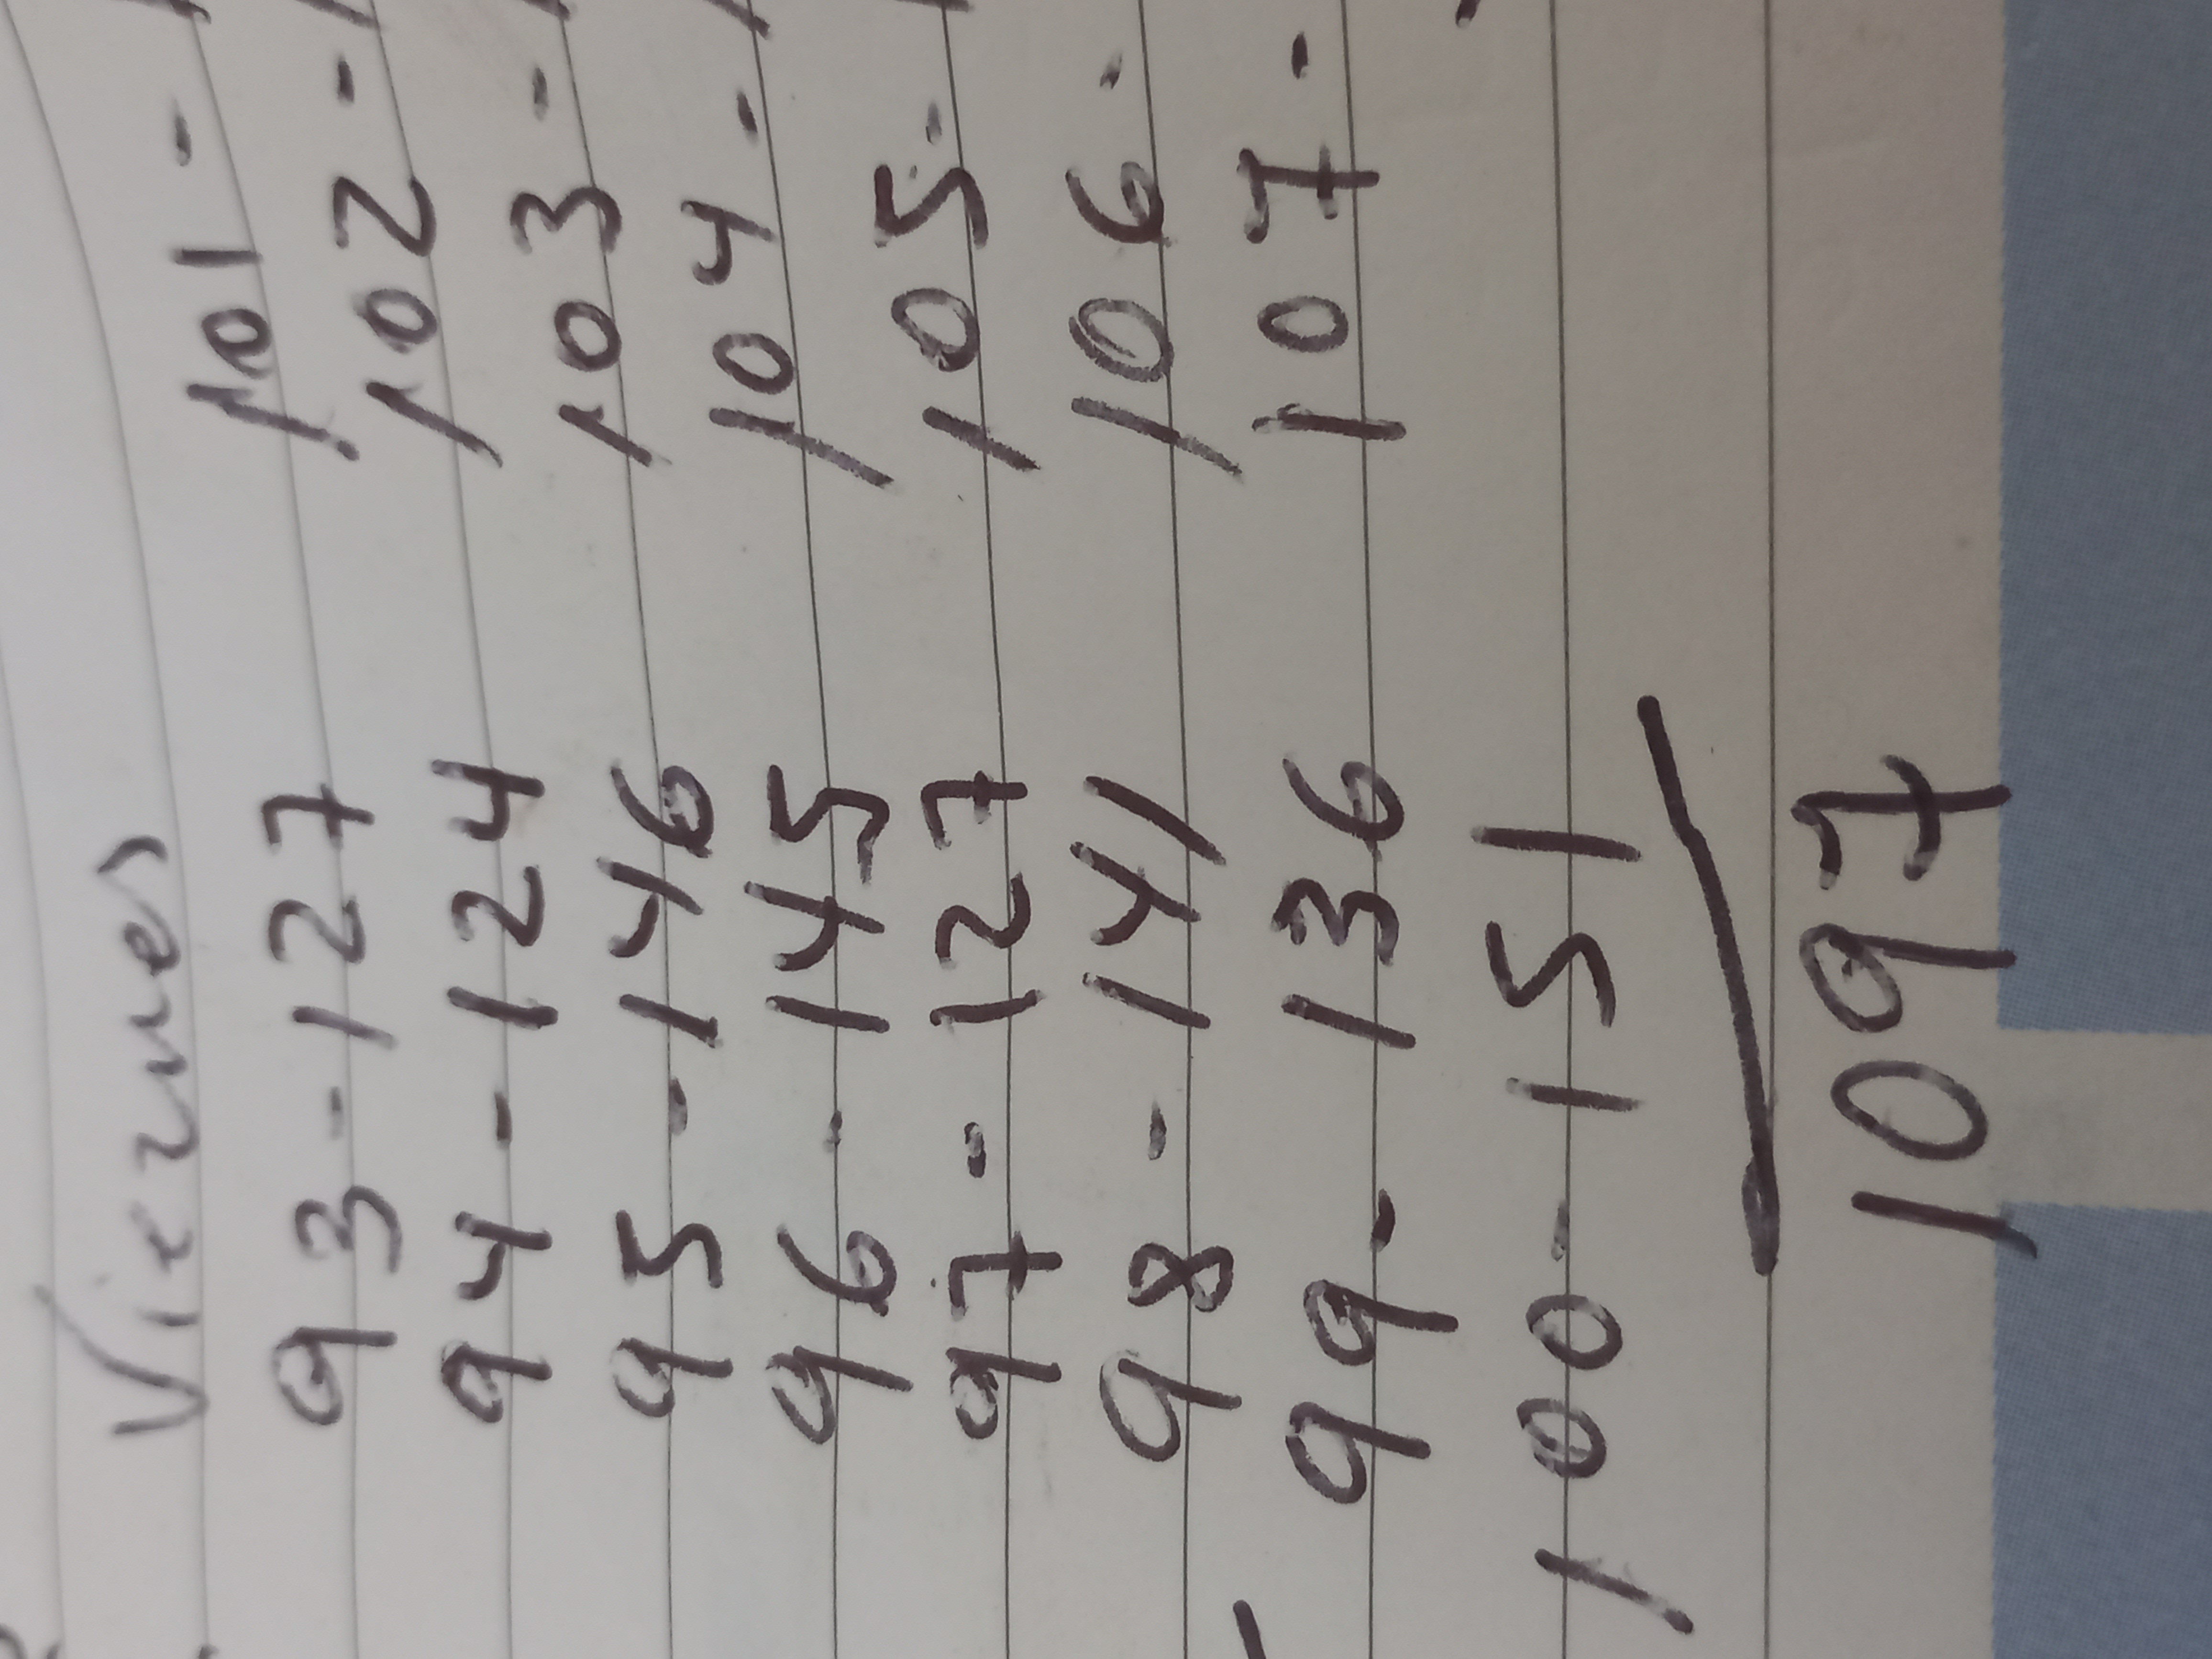 Viernes
93 - 127
94 - 124
95 - 146
96 - 145
97 - 127
98 - 141
99 - 136
100 - 151
1097
101 -
102 -
103 -
104 -
105 -
106 -
107 -